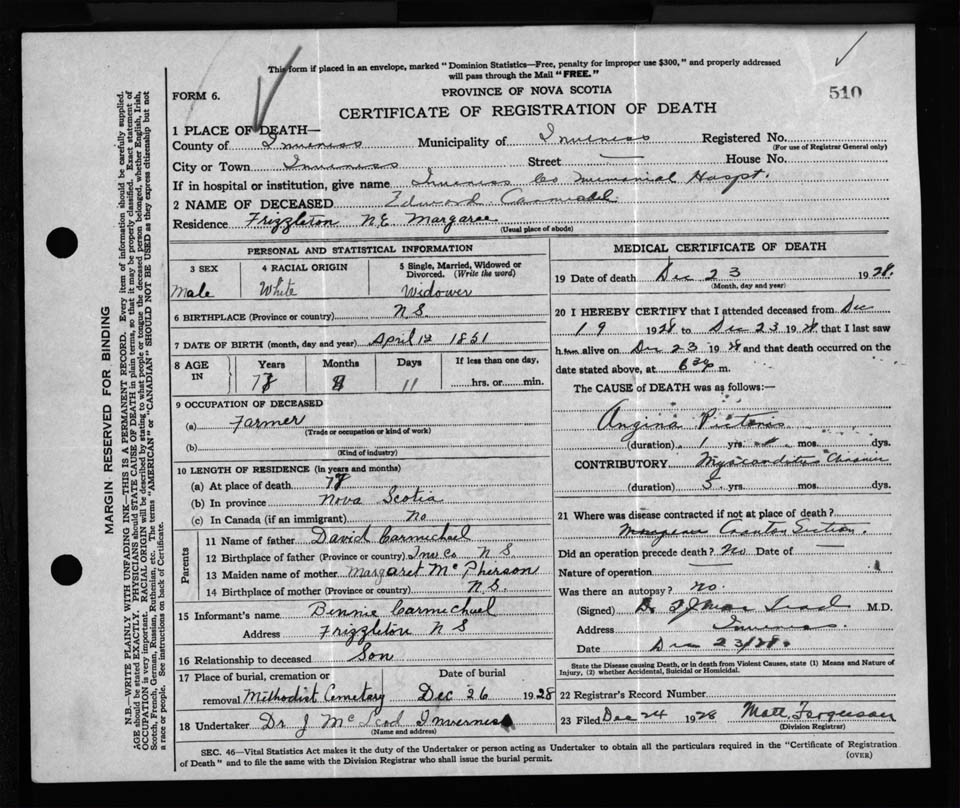 This form if placed in an envelope, marked "Dominion Statistics—Free, penalty for improper use $300," and properly addressed
will pass through the Mail "FREE."
510
PROVINCE OF NOVA SCOTIA
FORM 6.
CERTIFICATE OF REGISTRATION OF DEATH
1 PLACE OF DEATH—
County of Inverness Municipality of Inverness Registered No.
(For use of Registrar General only)
City or Town Inverness Street — House No.
If in hospital or institution, give name Inverness Co Memorial Hospt.
2 NAME OF DECEASED Edward Carmichel
Residence Frizzleton N.E. Margaree
(Usual place of abode)
PERSONAL AND STATISTICAL INFORMATION
3 SEX 4 RACIAL ORIGIN 5 Single, Married, Widowed or Divorced. (Write the word)
Male White Widower
6 BIRTHPLACE (Province or country) N S
7 DATE OF BIRTH (month, day and year) April 12 1851
8 AGE IN Years Months Days If less than one day,
8 11 hrs. or min.
9 OCCUPATION OF DECEASED
(a) Farmer
(Trade or occupation or kind of work)
(b)
(Kind of industry)
10 LENGTH OF RESIDENCE (in years and months)
(a) At place of death
(b) In province Nova Scotia
(c) In Canada (if an immigrant) No
Parents
11 Name of father David Carmichael
12 Birthplace of father (Province or country) Inver Co N S
13 Maiden name of mother Margaret McPherson
14 Birthplace of mother (Province or country) N.S.
15 Informant's name Bennie Carmichael
Address Frizzleton N S
16 Relationship to deceased Son
17 Place of burial, cremation or removal Date of burial
Methodist Cemetary Dec 26 1928
18 Undertaker Dr J McLeod Inverness
(Name and address)
MEDICAL CERTIFICATE OF DEATH
19 Date of death Dec 23 1928.
(Month, day and year)
20 I HEREBY CERTIFY that I attended deceased from Dec
19 1928 to Dec 23 1928 that I last saw
him alive on Dec 23 1928 and that death occurred on the
date stated above, at m.
The CAUSE of DEATH was as follows:—
Angina Pictoris
(duration) 1 yrs. mos. dys.
CONTRIBUTORY Myocarditis Chronic
(duration) 5 yrs. mos. dys.
21 Where was disease contracted if not at place of death?
Did an operation precede death? No Date of —
Nature of operation —
Was there an autopsy? no.
(Signed) Dr M.D.
Address Inverness.
Date Dec 23/28.
State the Disease causing Death, or in death from Violent Causes, state (1) Means and Nature of
Injury, (2) whether Accidental, Suicidal or Homicidal.
22 Registrar's Record Number
23 Filed Dec 24 1928 Matt. Fergusson
(Division Registrar)
SEC. 46—Vital Statistics Act makes it the duty of the Undertaker or person acting as Undertaker to obtain all the particulars required in the "Certificate of Registration
of Death" and to file the same with the Division Registrar who shall issue the burial permit.
(OVER)
MARGIN RESERVED FOR BINDING
N.B.—WRITE PLAINLY WITH UNFADING INK—THIS IS A PERMANENT RECORD. Every item of information should be carefully supplied.
AGE should be stated EXACTLY. PHYSICIANS should STATE CAUSE OF DEATH in plain terms, so that it may be properly classified. Exact statement of
OCCUPATION is very important. RACIAL ORIGIN will be described by stating to what people or tongue the deceased person belonged, whether English, Irish,
Scotch, French, German, Russian, Ruthenian, etc. The terms "AMERICAN" or "CANADIAN" SHOULD NOT BE USED as they express citizenship but not
a race or people. See instructions on back of Certificate.